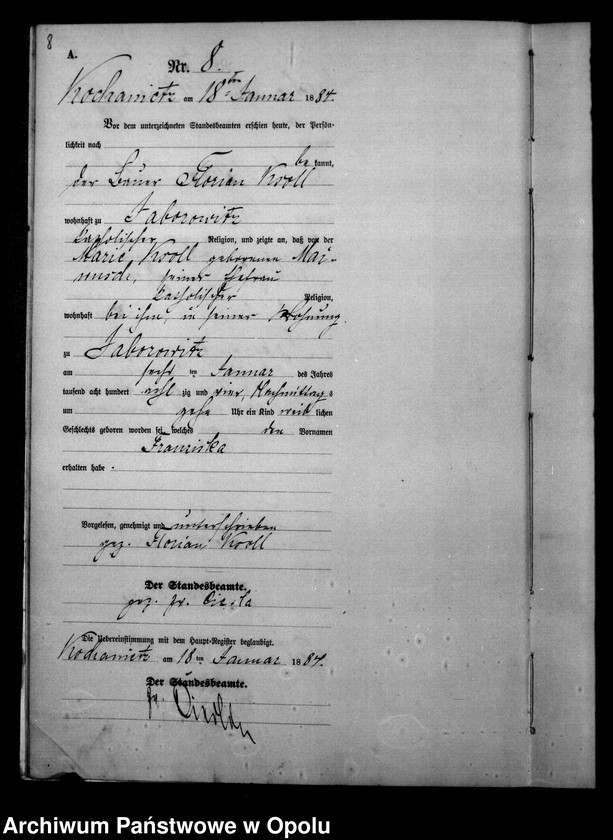 8
A.
Nr. 8.
Kochanietz am 18ten Januar 1884.
Vor dem unterzeichneten Standesbeamten erschien heute, der Persön-
lichkeit nach
be kannt,
der Bauer Florian Kroll
wohnhaft zu Jaborowitz
katholischer Religion, und zeigte an, daß von der
Marie Kroll geborenen
seiner Ehefrau
katholischer Religion,
wohnhaft bei ihm, in seiner Wohnung
zu Jaborowitz
am ten Januar des Jahres
tausend acht hundert acht zig und vier, Nachmittag s
um zehn Uhr ein Kind weib lichen
Geschlechts geboren worden sei, welches den Vornamen
Franziska
erhalten habe.
Vorgelesen, genehmigt und unterschrieben
gez. Florian Kroll
Der Standesbeamte.
gez. Fr.
Die Uebereinstimmung mit dem Haupt-Register beglaubigt.
Kochanietz am 18 ten Januar 1884.
Der Standesbeamte.
Fr.
Archiwum Państwowe w Opolu